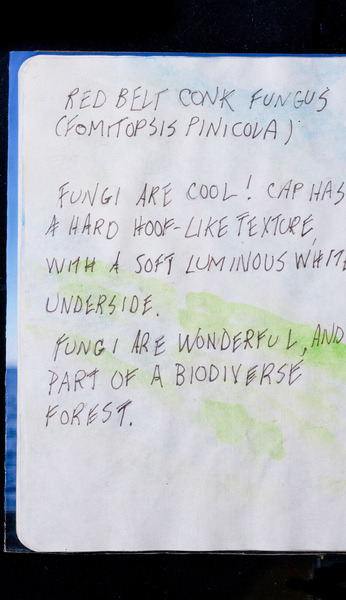 RED BELT CONK FUNGUS
(FOMITOPSIS PINICOLA)
FUNGI ARE COOL! CAP HAS
A HARD HOOF-LIKE TEXTURE,
WITH A SOFT LUMINOUS WHITE
UNDERSIDE.
FUNGI ARE WONDERFUL, AND
PART OF A BIODIVERSE
FOREST.